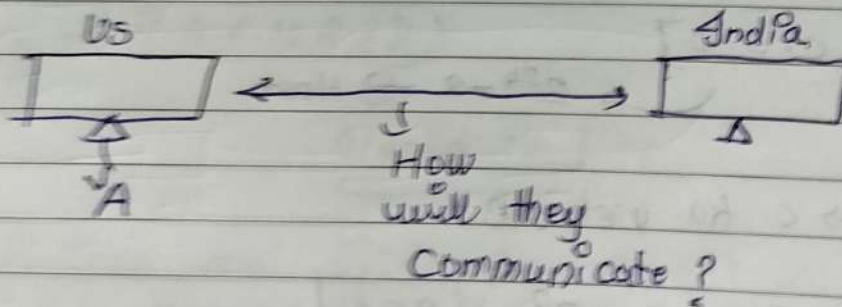 US
India
How
A
will they
Communicate ?